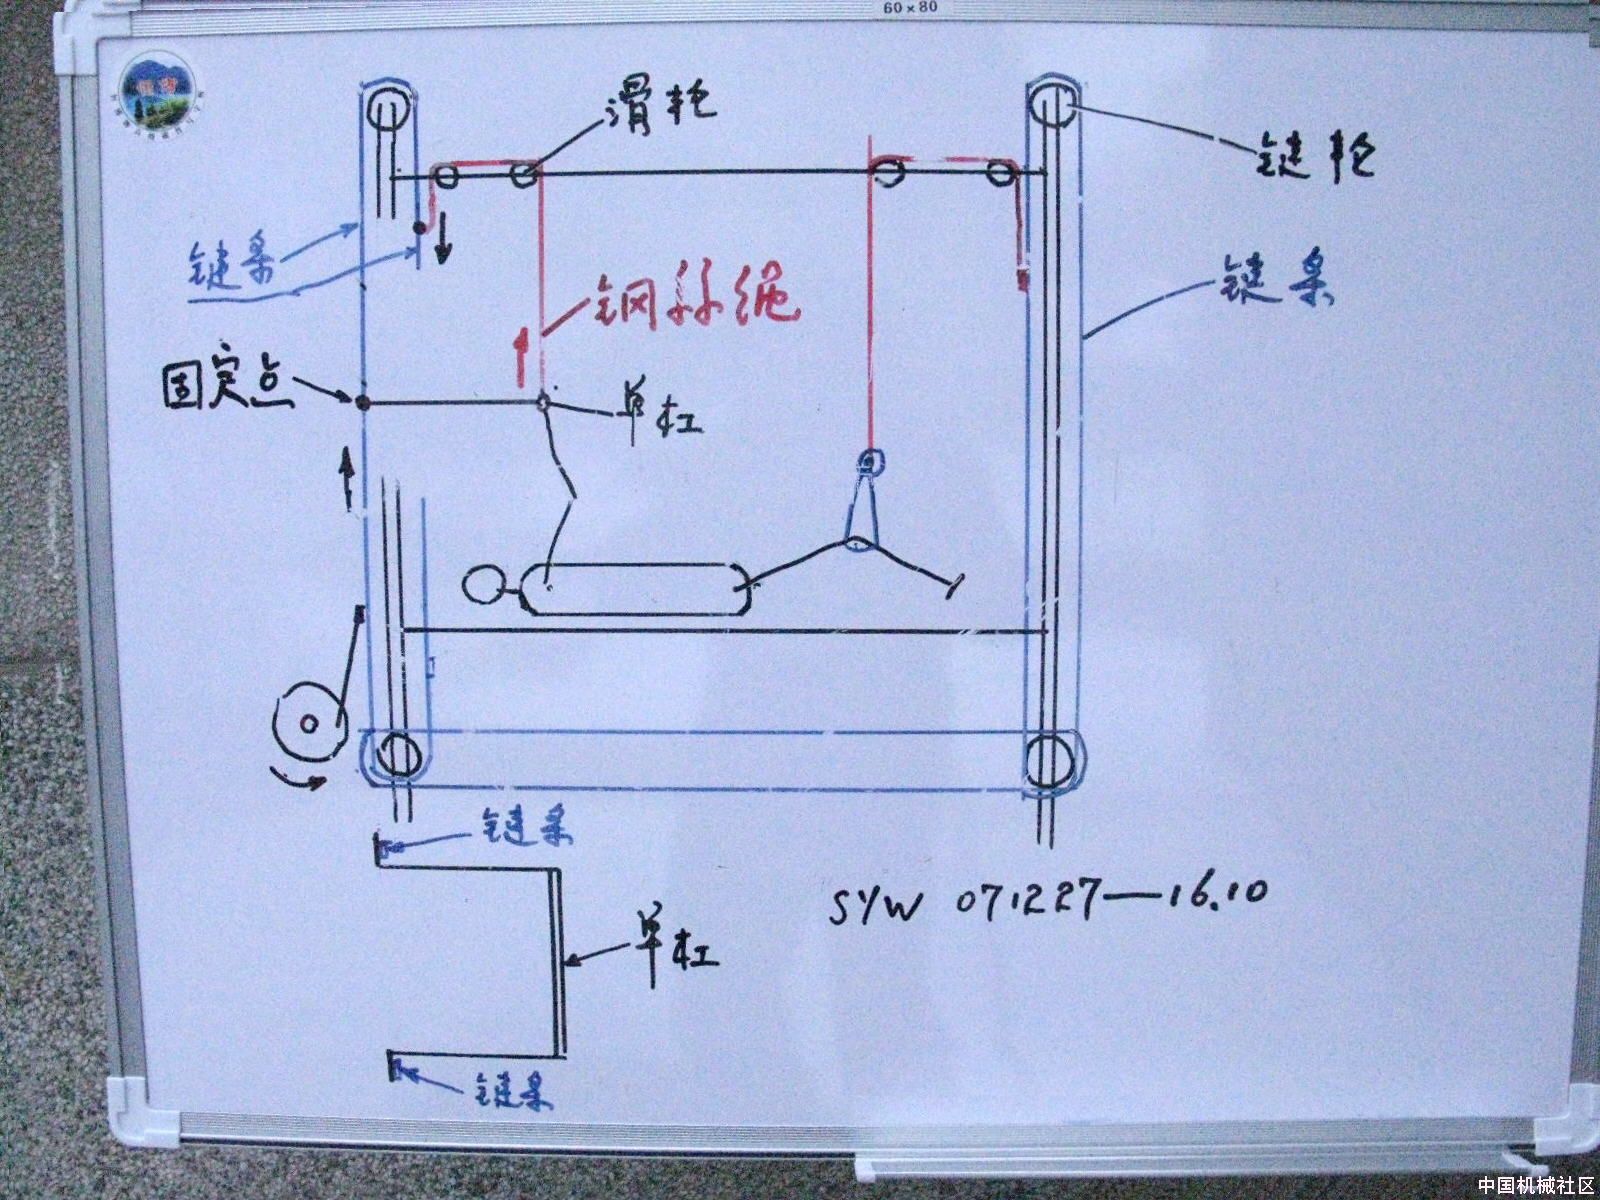 60×80
滑轮
链轮
链条
链条
钢丝绳
固定点
单杠
链条
SYW 071227—16.10
单杠
链条
中国机械社区